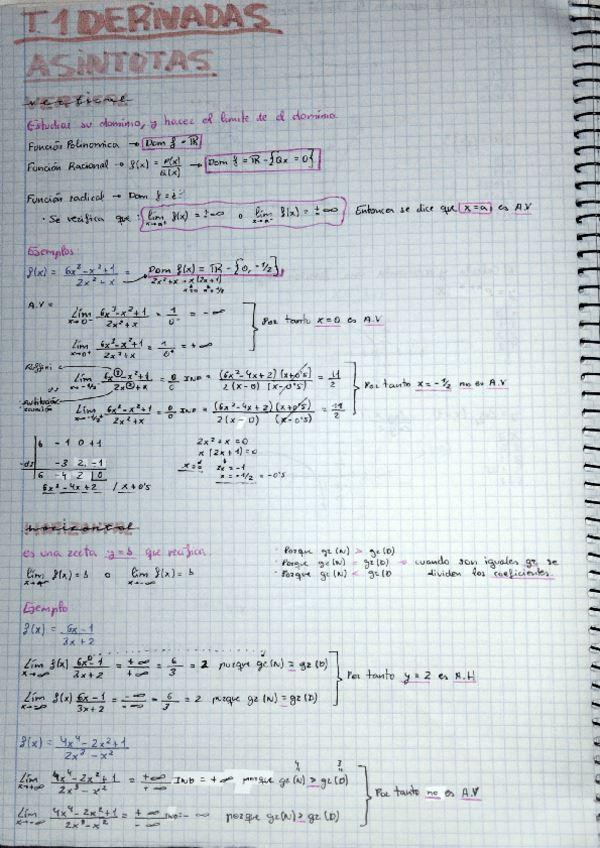 T.1 DERIVADAS
ASINTOTAS
vertical
Estudiar su dominio, y hacer el limite de el dominio
Función Polinomica → Dom f = ℝ
Función Racional → f(x) = P(x)/Q(x) → Dom f = ℝ - {Qx = 0}
Función radical → Dom f =
· Se verifica que: lim f(x) = ±∞ o lim f(x) = ±∞ Entonces se dice que x=a es A.V
Ejemplos
f(x) = 6x³-x²+1 / 2x²+x = Dom f(x) = ℝ - {0, -1/2}
2x²+x → x(2x+1)
A.V =
Lim x→0⁻ 6x³-x²+1 / 2x²+x = 1/0⁻ = -∞
Lim x→0⁺ 6x³-x²+1 / 2x²+x = 1/0⁺ = +∞
Por tanto x=0 es A.V
Ruffini
Lim 6x³-x²+1 / 2x²+x = 0/0 IND = (6x²-4x+2)(x+0'5) / 2(x-0)(x-0'5) = 11/2
Lim 6x³-x²+1 / 2x²+x = 0/0 IND = (6x²-4x+2)(x+0'5) / 2(x-0)(x-0'5) = 11/2
Por tanto x=-1/2 no es A.V
6 -1 0 +1
-3 2 -1
6 -4 2 0
6x²-4x+2 / x+0'5
2x²+x=0
x(2x+1)=0
2x=-1
x=-1/2 = -0'5
horizontal
es una recta y=b que verifica
lim f(x)=b o lim x→-∞ f(x)=b
· Porque gr(N) > gr(D)
· Porque gr(N) = gr(D) → cuando son iguales gr se dividen los coeficientes.
· Porque gr(N) < gr(D)
Ejemplo
f(x) = 6x-1 / 3x+2
Lim x→∞ f(x) 6x-1 / 3x+2 = +∞/+∞ = 6/3 = 2 porque gr(N) = gr(D)
Lim f(x) 6x-1 / 3x+2 = -∞/-∞ = 6/3 = 2 porque gr(N) = gr(D)
Por tanto y=2 es A.H
f(x) = 4x⁴-2x²+1 / 2x³-x²
Lim x→+∞ 4x⁴-2x²+1 / 2x³-x² = +∞/+∞ IND = +∞ porque gr(N) > gr(D)
Lim x→-∞ 4x⁴-2x²+1 / 2x³-x² = +∞/-∞ IND = -∞ porque gr(N) > gr(D)
Por tanto no es A.V